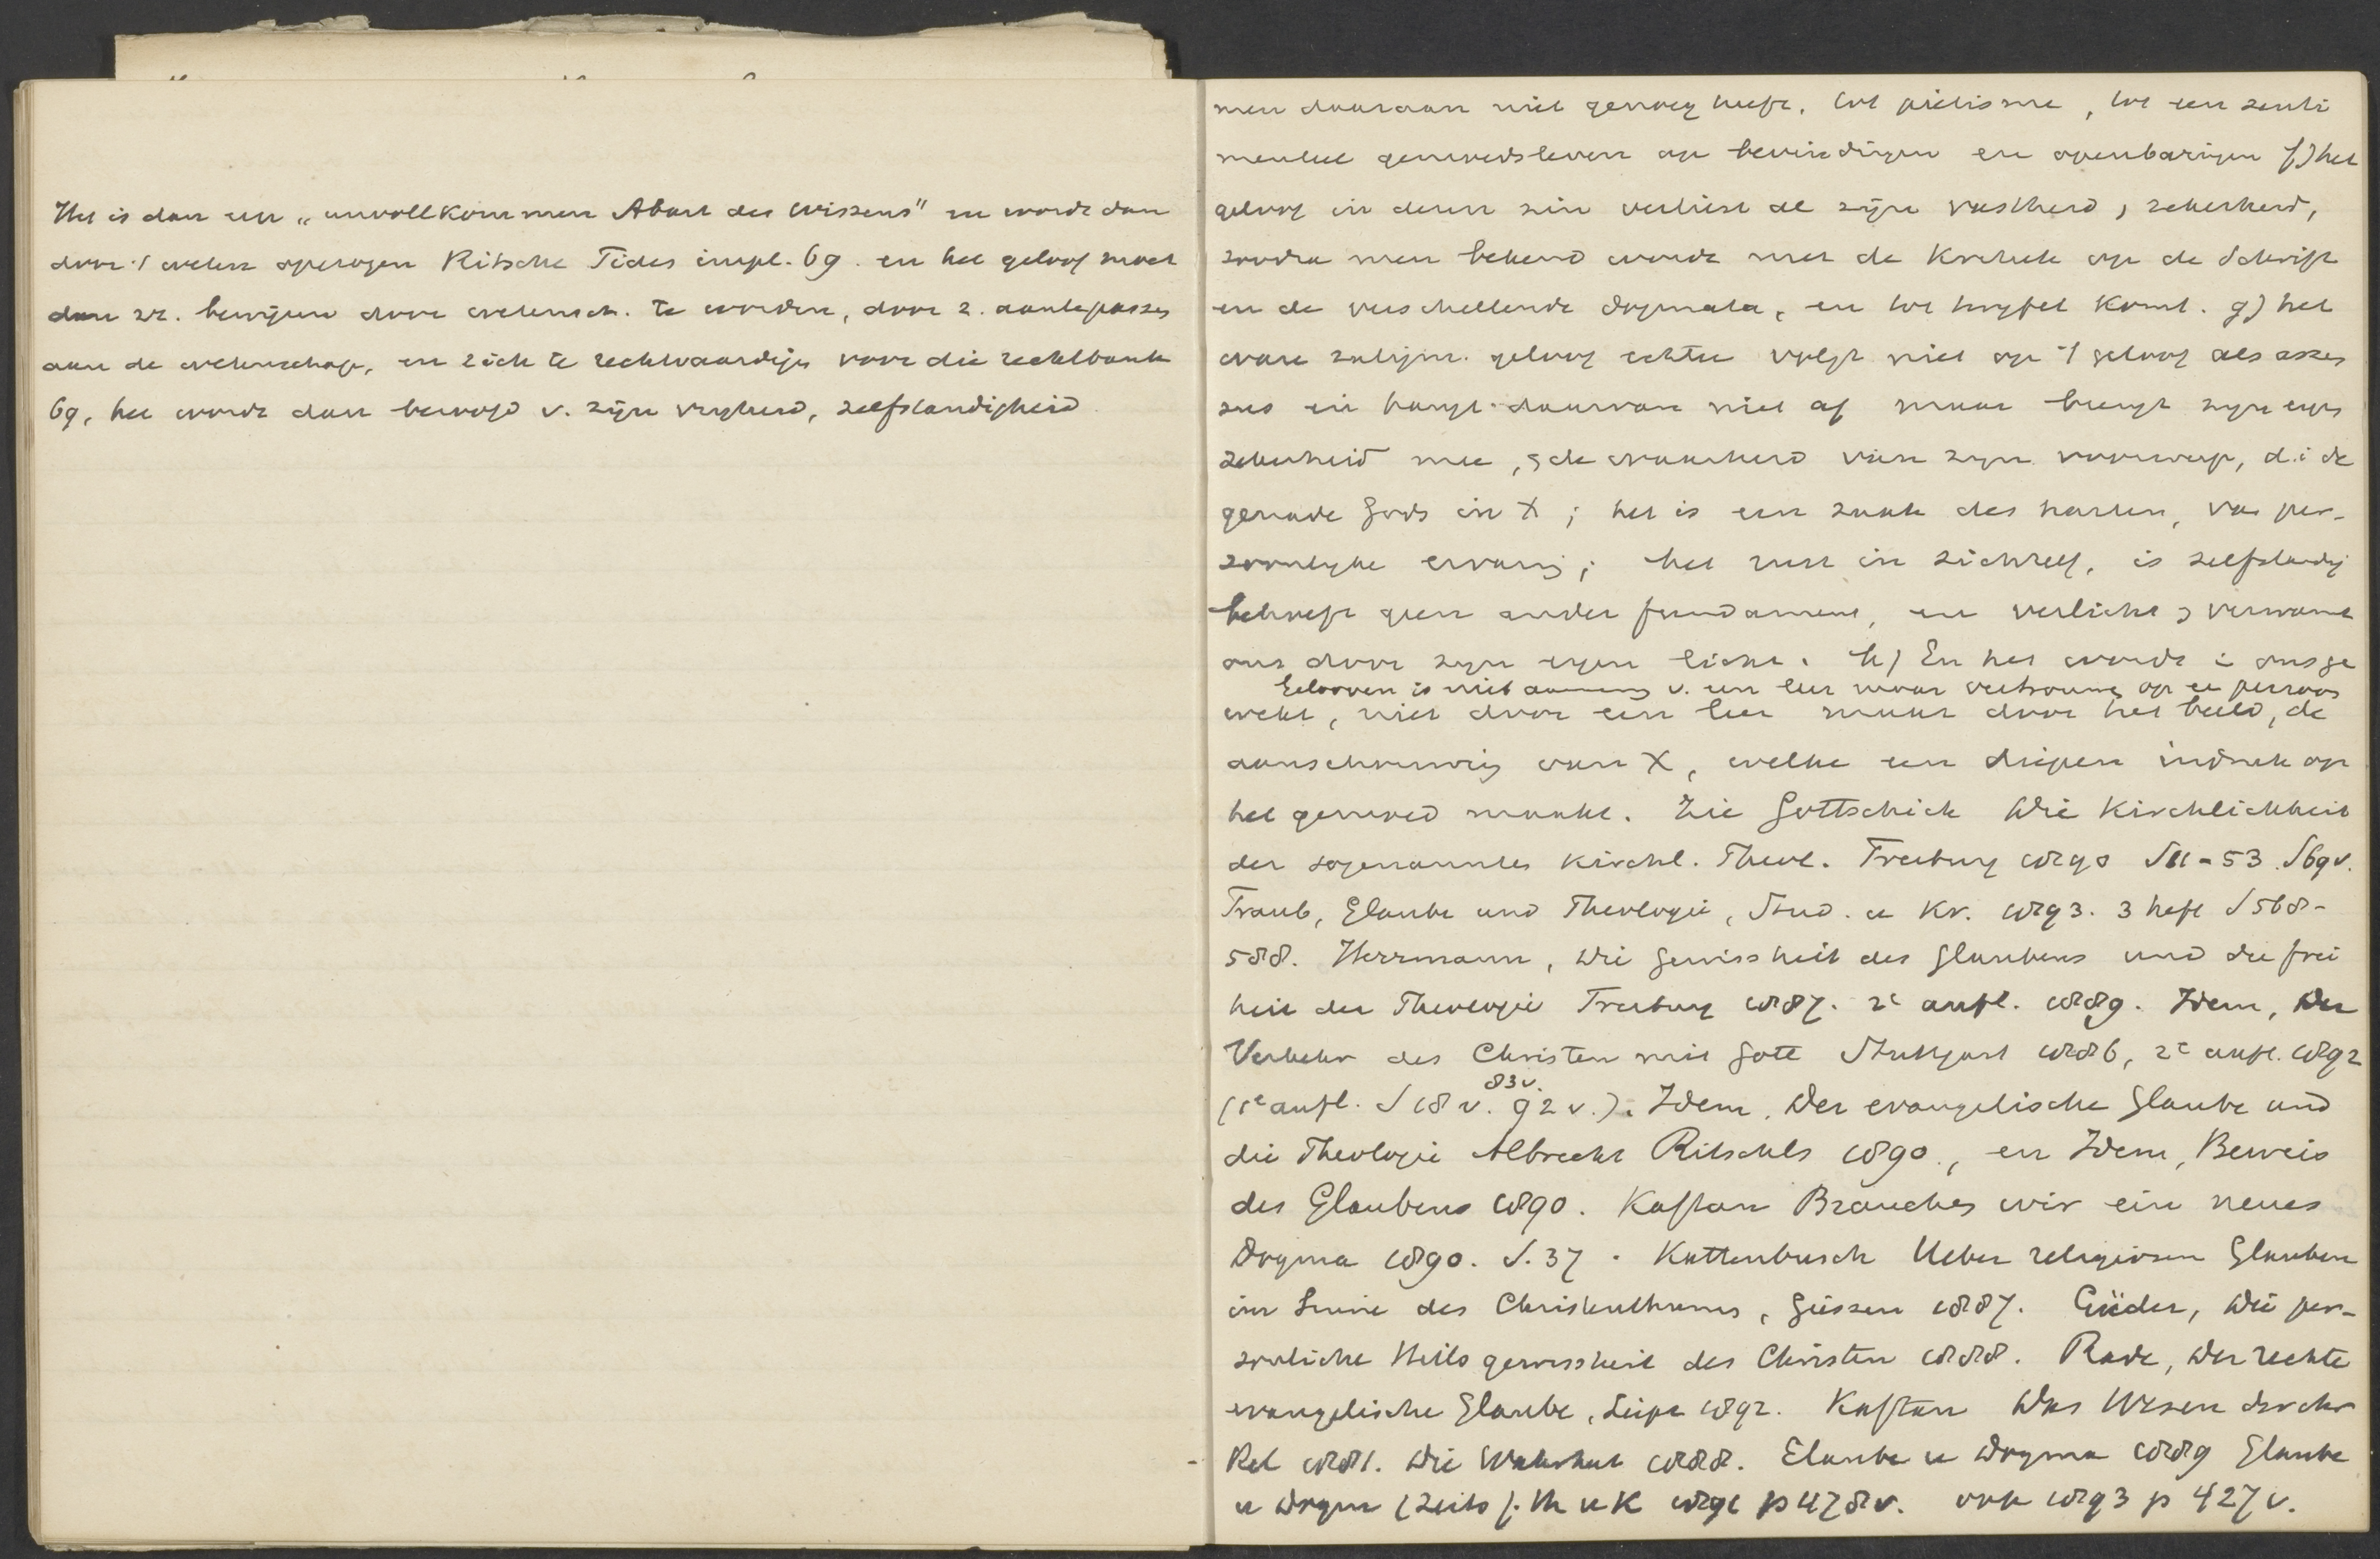 Het is dan een „unvollkommen Abart des Wissens" en wordt dan
door 't weten opgezogen Ritschl Fides impl. 69. en het geloof moet
dan zr. bewijzen door wetensch. te worden, door z. aantepassen
aan de wetenschap, en zich te rechtvaardigen voor die rechtbank
69, het wordt dan beroofd v. zijn vrijheid, zelfstandigheid
men daaraan niet genoeg heeft, tot pietisme, tot een senti
menteel gemoedsleven op bevindingen en openbaringen f) het
geloof in dezen zin verliest al zijn vastheid, zekerheid,
zoodra men bekend wordt met de Kritiek op de Schrift
en de verschillende dogmata, en tot twijfel komt. g) het
ware zaligm. geloof echter volgt niet op 't geloof als assen
sus en hangt daarvan niet af maar brengt zijn eigen
zekerheid mee, de waarheid van zijn voorwerp, d.i. de
genade Gods in X; het is een zaak des harten, van per-
soonlijke ervaring; het rust in zichzelf, is zelfstandig
behoeft geen ander fundament, en verlicht verwarmt
ons door zijn eigen licht. h) En het wordt in ons ge
Gelooven is niet aanneming v. een leer maar vertrouwen op een persoon
wekt, niet door een leer maar door het beeld, de
aanschouwing van X, welke een diepen indruk op
het gemoed maakt. Zie Gottschick Die Kirchlichkeit
der sogenannten Kirchl. Theol. Freiburg 1890 S 11-53. S 69 v.
Traub, Glaube und Theologie, Stud. u Kr. 1893. 3 heft S 568-
588. Herrmann, Die Gewissheit des Glaubens und die Frei
heit der Theologie Freiburg 1887. 2e aufl. 1889. Idem, Der
Verkehr des Christen mit Gott Stuttgart 1886, 2e aufl. 1892
83 v.
(1e aufl. S 18 v. 92 v.). Idem, Der evangelische Glaube und
die Theologie Albrecht Ritschls 1890., en Idem, Beweis
des Glaubens 1890. Kaftan Brauchen wir ein neues
Dogma 1890. S. 37. Kattenbusch Ueber religiösen Glauben
im Sinne des Christenthums, Giessen 1887. Güder, Die per-
sönliche Heilsgewissheit des Christen 1888. Rade, Der rechte
evangelische Glaube, Leipz 1892. Kaftan Das Wesen der chr
Rel 1881. Die Wahrheit 1888. Glaube u Dogma 1889 Glaube
u Dogm (Zeits f. Th u K 1891 p 478 v. ook 1893 p 427 v.